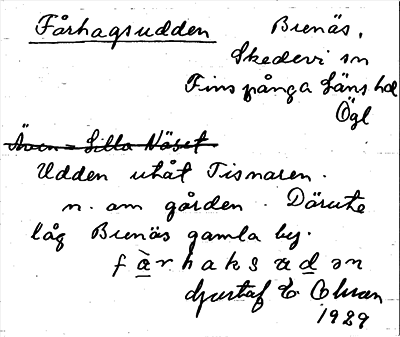 Fårhagsudden Brenäs,
Skedevi sn
Finspånga Läns hd
Ögl
Även = Lilla Näset
Udden utåt Tisnaren.
n. om gården. Därute
låg Brenäs gamla by.
Gustaf E.
1929